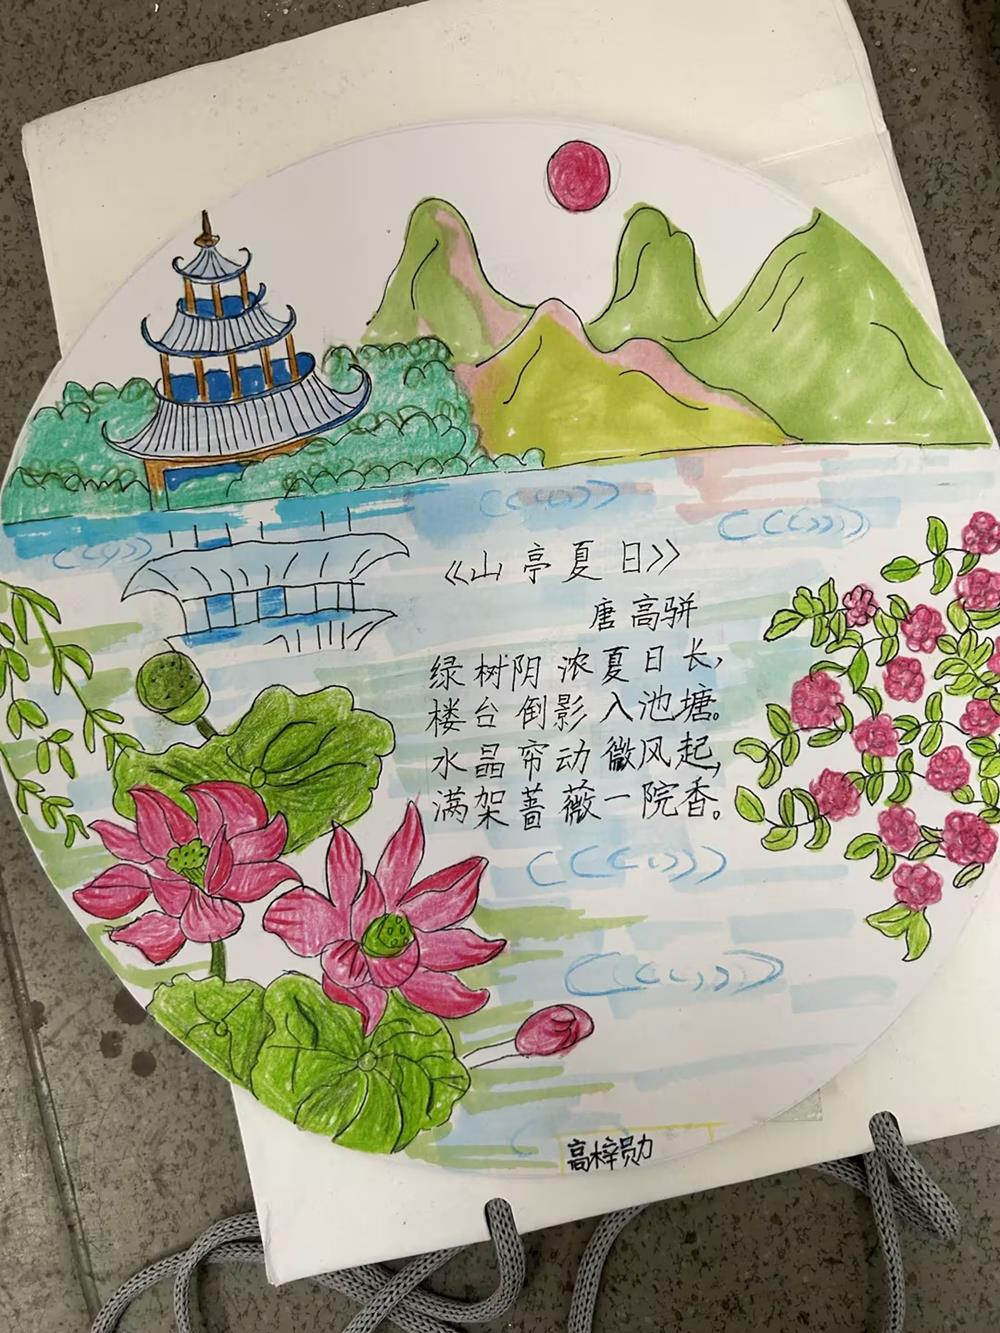 《山亭夏日》
唐高骈
绿树阴浓夏日长，
楼台倒影入池塘。
水晶帘动微风起，
满架蔷薇一院香。
高梓勋